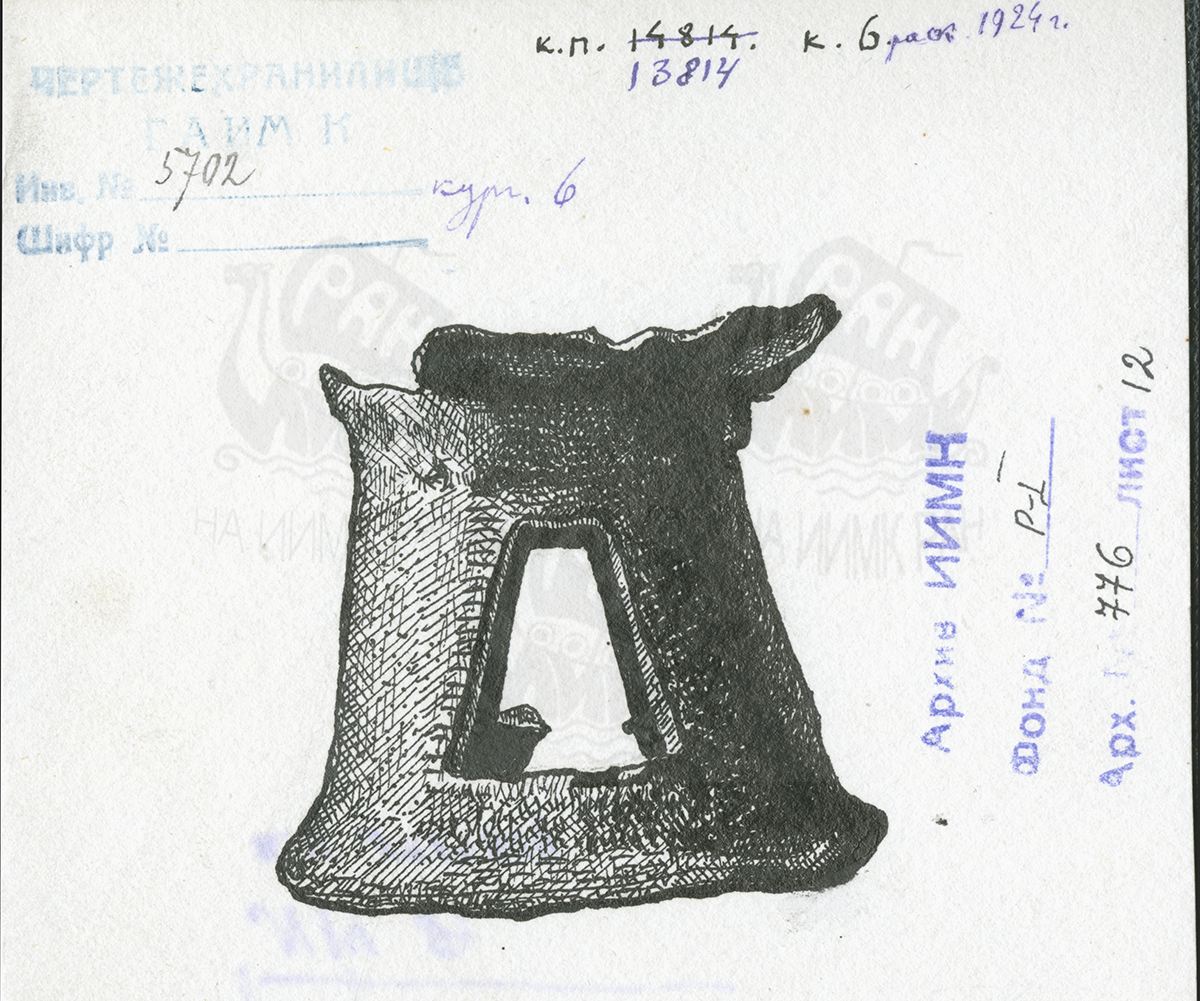 к.п. 14814. к. 6 раск. 1924 г.
13814
ЧЕРТЕЖЕХРАНИЛИЩЕ
ГАИМК
Инв. № 5702 кург. 6
Шифр №
РАН
РАН
НА ИИМК РАН
Архив ИИМК
Фонд № Р-I
Арх. № 776 лист 12